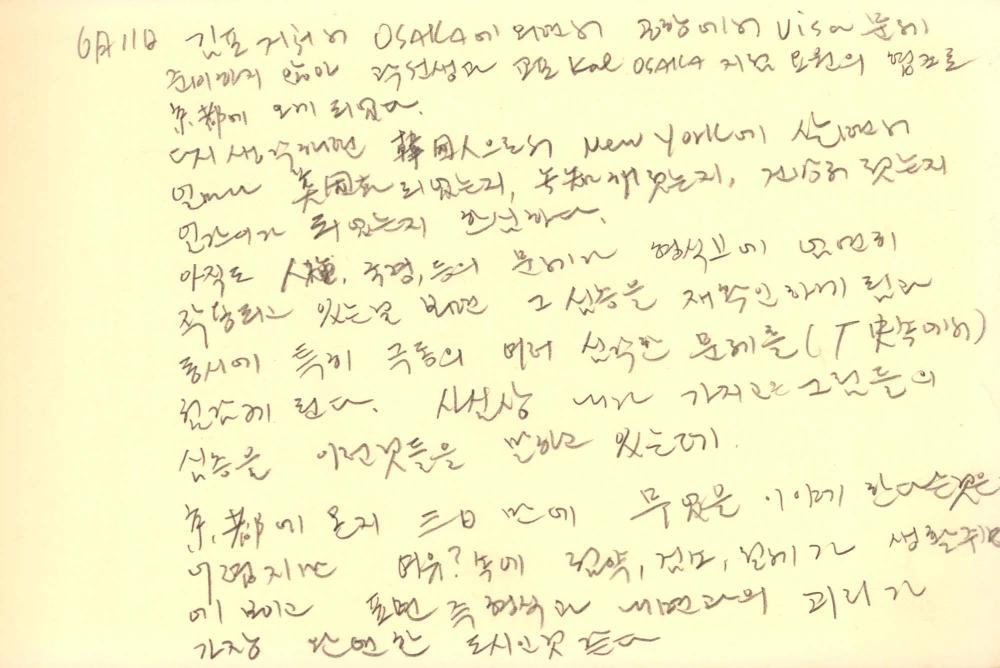 6月11日 김포 거쳐서 OSAKA에 와면서 공항에서 Visa 문제
많아 곽선생과 교포 Kal OSAKA 지점 요원의 협조로
京都에 오게 되었다.
다시 생각하면 韓国人으로서 New York에 살면서
얼마나 美国化 되었는지, 둔해졌는지,
되었는지 한심하다.
아직도 人種, 국경, 등의 문제가 형식으로 엄연히
작용되고 있는걸 보면 그 심층을 재확인하게 됨과
동시에 특히 극동의 여러 심각한 문제를 (歷史속에서)
실감케 된다. 사실상 내가 가져온 그림들의
심층을 이런것들을 말하고 있는데.
京都에 온지 三日 만에 무엇을 이야기 한다는것은
어렵지만 여유?속에 절약, 검소, 절제가 생활주변
에 보이고 표면 즉 형식과 내면과의 괴리가
가장 완연한 도시인것 같다